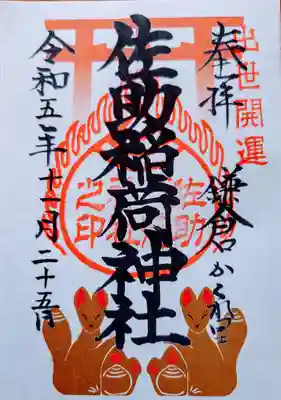 出世開運
奉拝
鎌倉かくれ里
佐助稲荷神社
佐助
稲荷神社
之印
令和五年十一月二十五日